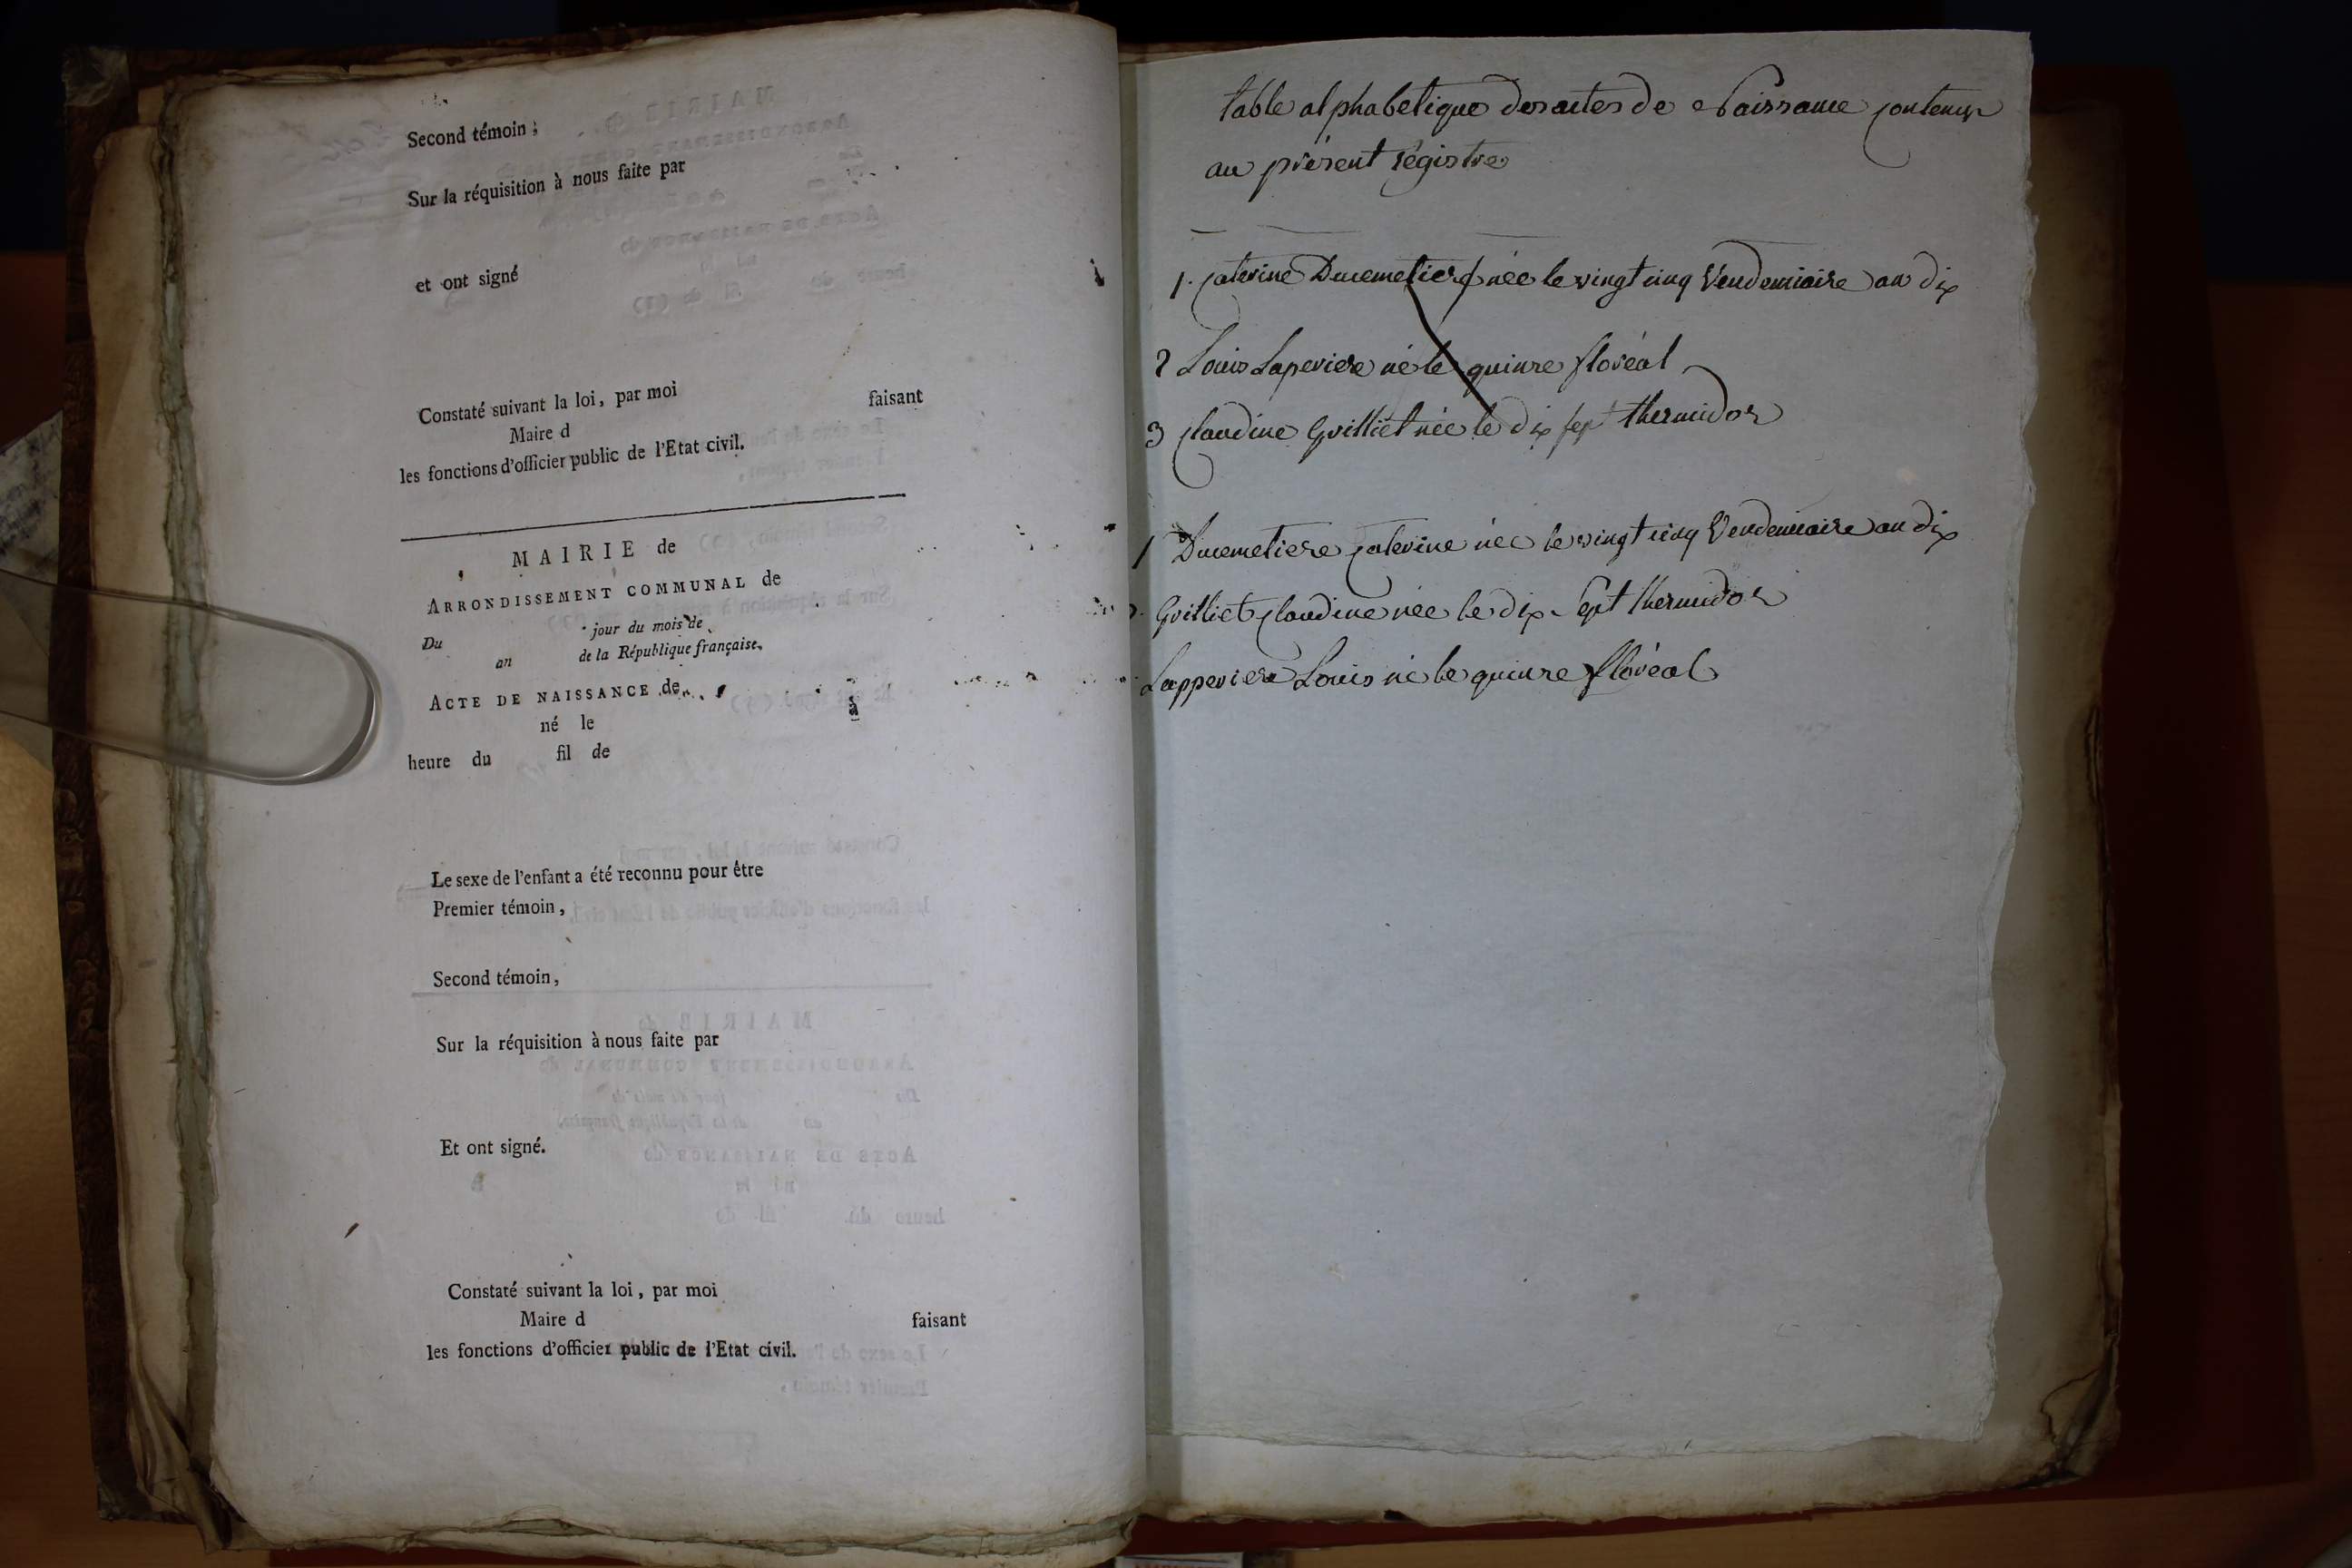 Second témoin ;
Sur la réquisition à nous faite par
et ont signé
Constaté suivant la loi, par moi
Maire d faisant
les fonctions d'officier public de l'Etat civil.
MAIRIE de
ARRONDISSEMENT COMMUNAL de
Du jour du mois de
an de la République française.
ACTE DE NAISSANCE de
né le à
heure du fil de
Le sexe de l'enfant a été reconnu pour être
Premier témoin,
Second témoin,
Sur la réquisition à nous faite par
Et ont signé.
Constaté suivant la loi, par moi
Maire d faisant
les fonctions d'officier public de l'Etat civil.
table alphabetique des actes de Naissance contenus
au présent régistre
1. Caterine Ducemetiere née le vingt cinq Vendemiaire an dix
2 Louis Laperiere né le quinze floréal
3 Claudine Gvilliet née le dix sept thermidor
1 Ducemetiere Caterine née le vingt cinq Vendemiaire an dix
Gvilliet Claudine née le dix Sept thermidor
Lapperiere Louis né le quinze floréal